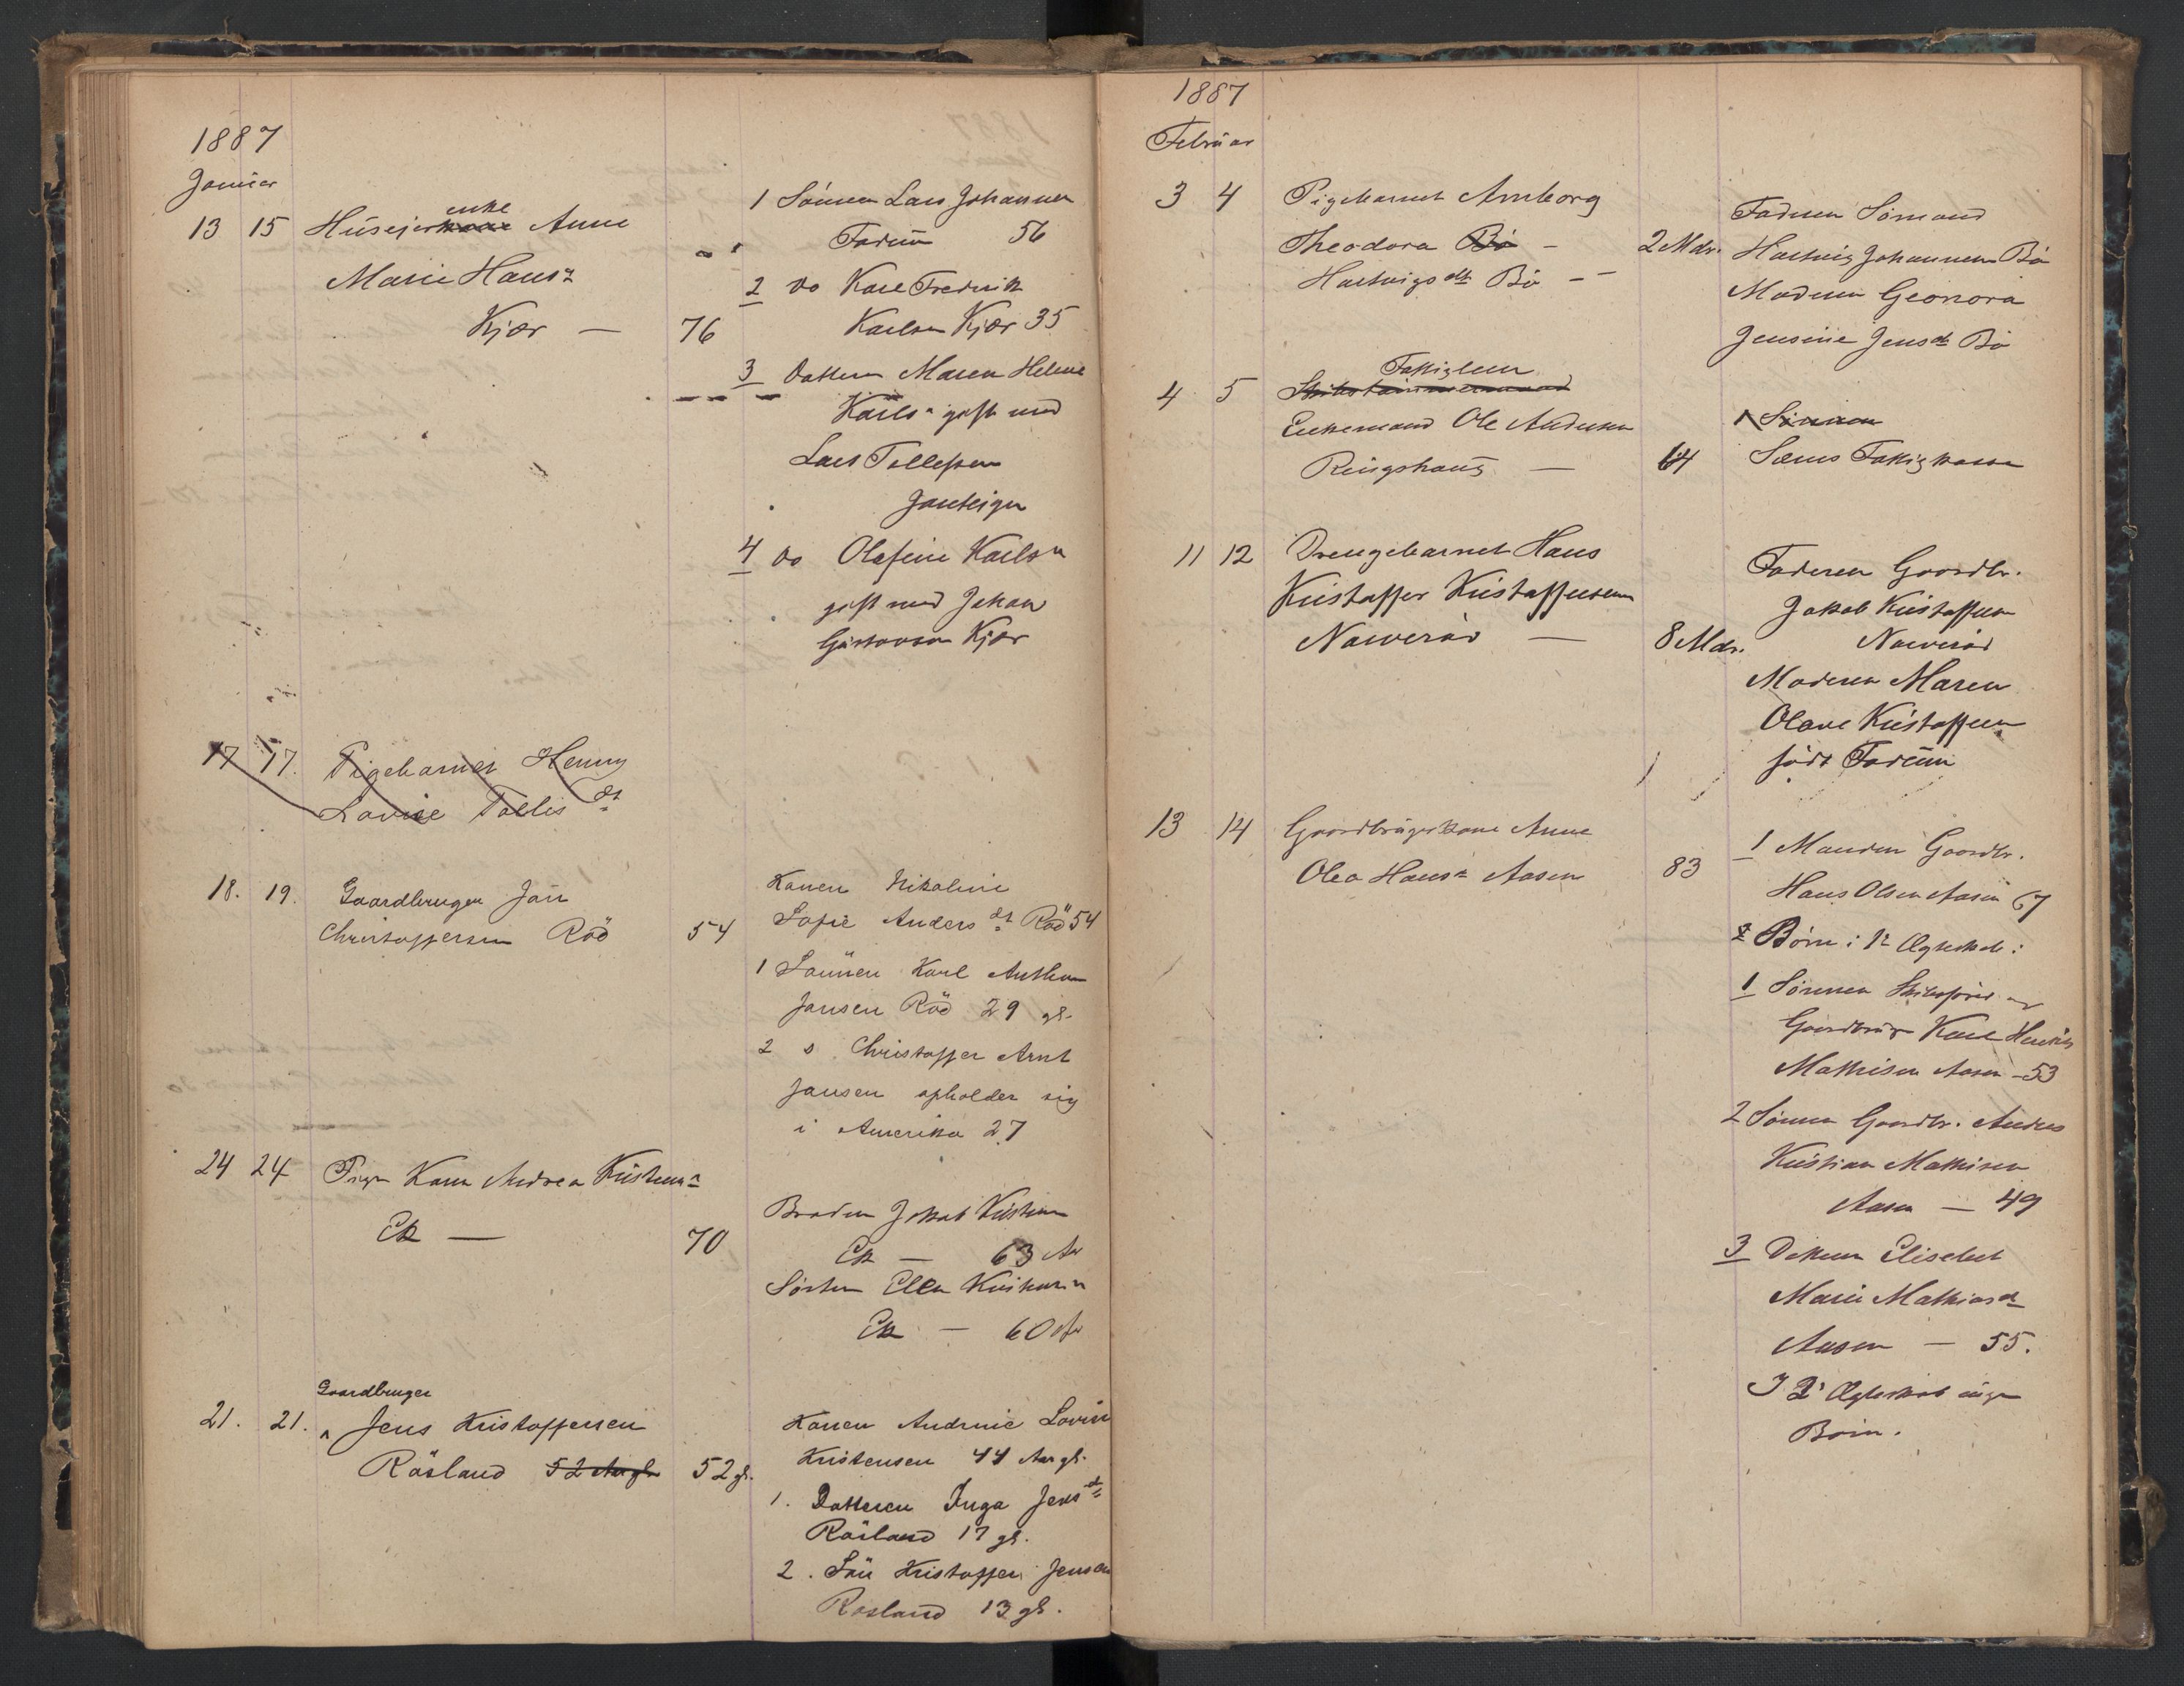 1887
Januar
13 15 Huseier kone enke Anne
Marie Hansd
Kjær — 76
1 Sønnen Lars Johannes
Farum 56
2 do Karl Fredrik
Karlsen Kjær 35
3 Datteren Maren Helene
Karlsd gift med
Lars Tollefsen
4 do Olafine Karlsd
gift med Johan
Gustavsen Kjær
17 17. Pigebarnet Henny
Lovise Tollisdt
18. 19. Gaardbruger Jan
Christoffersen Röd 54
Konen Nikoline
Sofie Andersdt Röd 54
1 Sønnen Karl Anthon
Jansen Röd 29 gl.
2 s. Christoffer Arnt
Jansen opholder sig
i Amerika 27
24 24 Pige Karen Andrea Kristensd
Ek — 70
Broderen Jakob Kristensen
Ek — 63 Ar
Søsteren Ellen Kristensd
Ek — 60 Ar
Gaardbruger
21. 21. Jens Kristoffersen
Råsland 52 Aar gl. 52 gl.
Konen Andrine Lovise
Kristensen 44 Aar gl.
1. Datteren Inga Jensdt
Råsland 17 gl.
2. Sön Kristoffer Jensen
Rosland 13 gl.
1887
Februar
3 4 Pigebarnet Arnborg
Theodora Bø —
Hartvigsdt Bø — 2 Mdr.
Faderen Sømand
Hartvig Johannesen Bø
Moderen Geonora
Jensine Jensdt Bø
4 5 Skibstømmermand Fattiglem
Enkemand Ole Andersen
Ringshaug — 64
1 Sønnen
Sems Fattigkasse
11 12 Drengebarnet Hans
Kristoffer Kristoffersen
Narverød — 8 Mdr.
Faderen Gaardbr.
Jakob Kristoffersen
Narverød
Moderen Maren
Olave Kristoffersen
født Farum
13 14 Gaardbrugerkone Anne
Olea Hansd Aasen 83
1 Manden Gaardbr.
Hans Olsen Aasen 67
2 Børn i 1ste Ægteskab:
1 Sønnen Skibsfører og
Gaardbruger Karl Henrik
Mathisen Aasen — 53
2 Sønnen Gaardbr. Andreas
Kristian Mathisen
Aasen — 49
3 Datteren Elisebet
Marie Mathiasdt
Aasen — 55.
I 2 Ægteskab ingen
Børn.